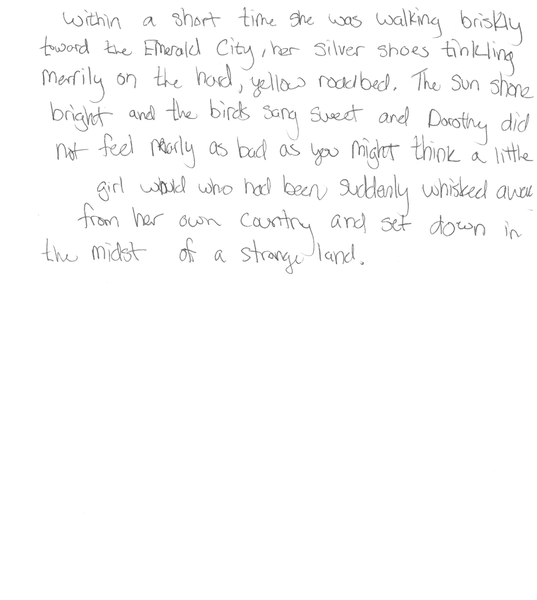 Within a short time she was walking briskly
toward the Emerald City, her Silver shoes tinkling
merrily on the hard, yellow roadbed. The Sun shone
bright and the birds sang sweet and Dorothy did
not feel nearly as bad as you might think a little
girl would who had been suddenly whisked away
from her own country and set down in
the midst of a strange land.